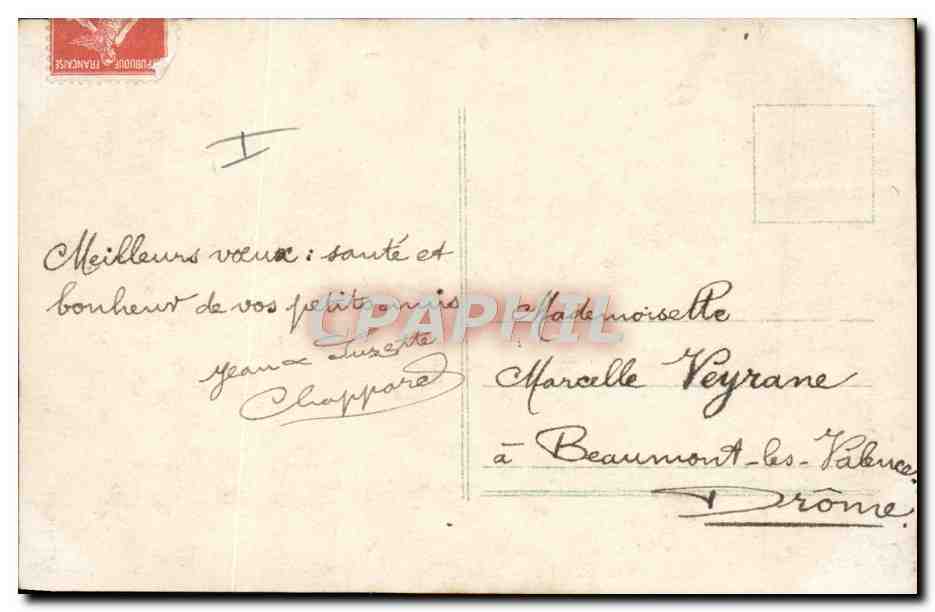 RÉPUBLIQUE FRANÇAISE
I
Meilleurs vœux : santé et
bonheur de vos petits amis
Jean & Suzette
Chappard
Mademoiselle
Marcelle Veyrane
à Beaumont-les-Valence
Drôme.
CPAPHIL